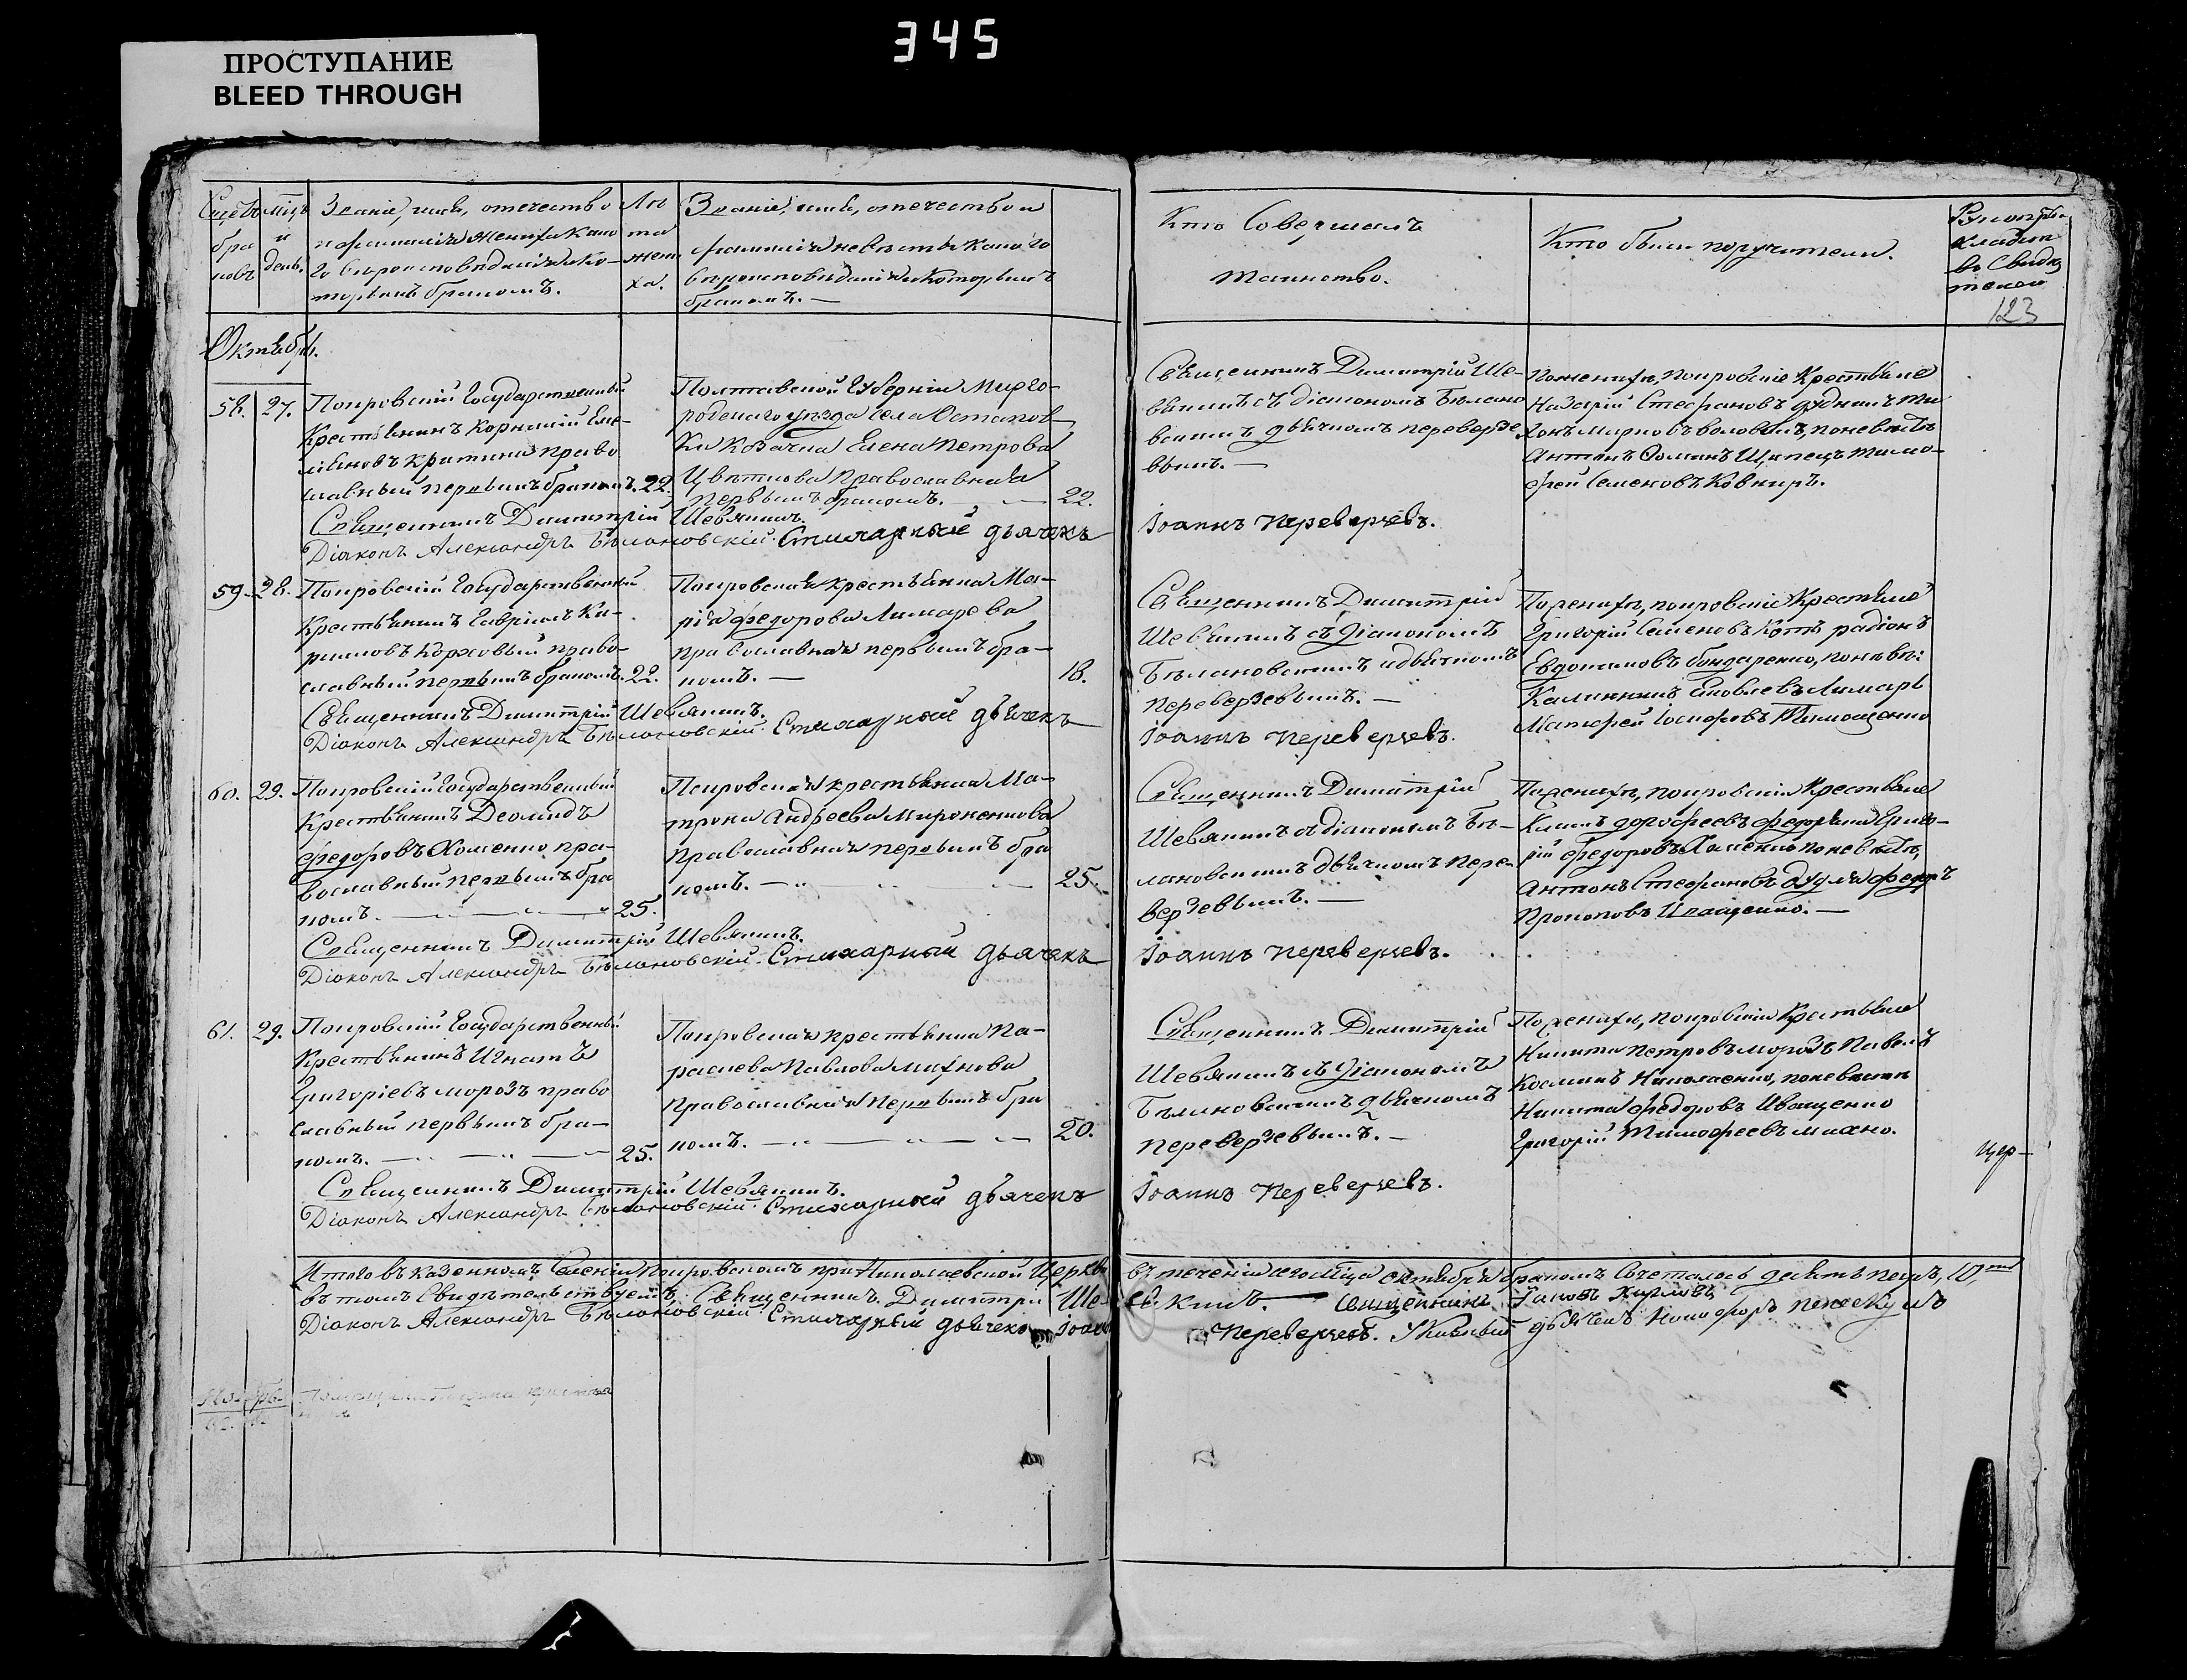 345
ПРОСТУПАНИЕ
BLEED THROUGH
Счетъ браковъ
Мцъ и день.
Званіе, имя, отечество
и фамилія жениха како
го вѣроисповѣданія и ко-
торымъ бракомъ.
Лѣта жениха.
Званіе, имя, отечество и
фамилія невѣсты какого
вѣроисповѣданія и которымъ
бракомъ. —
Кто Совершалъ
таинство.
Кто были поручители.
123
Октябрь.
58. 27.
Покровскій Государственный
Крестьянинъ Корнилій Еме-
ліановъ право
славный первымъ бракомъ. 22.
Полтавской Губерніи Мирго-
родскаго уѣзда села Остапов-
ки козачка Елена Петрова
Цвѣткова Православная
первымъ бракомъ. — 22.
Священникъ Димитрій Ше-
вякинъ съ діакономъ Бѣлано
вскимъ дьячкомъ переверзе
вымъ. —
По женихѣ, покровскіе Крестьяне
Назарій Стефановъ дудникъ Ти
хонъ Марковъ воловикъ, по невѣстѣ
Антонъ Щипецъ тимо-
фей Семеновъ Ковниръ.
Священникъ Димитрій Шевякинъ.
Діаконъ Александръ Бѣлановскій. Стихарный дьячекъ Іоаннъ Переверзевъ.
59. 28.
Покровскій Государственный
Крестьянинъ Гавріилъ Ки-
риловъ Коржовый право-
славный первымъ бракомъ. 22.
Покровская крестьянка Ма-
рія федорова Лимарева
православная первымъ бра-
комъ. — 18.
Священникъ Димитрій
Шевякинъ съ діакономъ
Бѣлановскимъ и дьячкомъ
Переверзевымъ. —
По женихѣ, покровскіе Крестьяне
Григорій Семеновъ Котъ радіонъ
Евдокимовъ бондаренко, по невѣс:
Калинникъ Яковлевъ Лимарь
Матфей Іосифовъ Тимошенко
Священникъ Димитрій Шевякинъ.
Діаконъ Александръ Бѣлановскій. Стихарный дьячекъ Іоаннъ Переверзевъ.
60. 29.
Покровскій Государственный
Крестьянинъ Деомидъ
федоровъ Хоменко пра-
вославный первымъ бра
комъ. — 25.
Покровская крестьянка Ма-
трона Андреева Мироненкова
Православная первымъ бра
комъ. — 25.
Священникъ Димитрій
Шевякинъ съ діакономъ Бѣ-
лановскимъ дьячкомъ Пере-
верзевымъ. —
По женихѣ, покровскіе Крестьяне
Климъ дорофеевъ Григо-
рій федоровъ Хоменко по невѣстѣ,
Антонъ Стефановъ дудля федоръ
Прокоповъ Иващенко. —
Священникъ Димитрій Шевякинъ.
Діаконъ Александръ Бѣлановскій. Стихарный дьячекъ Іоаннъ Переверзевъ.
61. 29.
Покровскій Государственный
Крестьянинъ Игнатъ
Григоріевъ морозъ право
славный первымъ бра-
комъ. — 25.
Покровская крестьянка Па-
раскева Павлова михнова
Православная первымъ бра
комъ. — 20.
Священникъ Димитрій
Шевякинъ съ діакономъ
Бѣлановскимъ дьячкомъ
Переверзевымъ. —
По женихѣ, покровскіе Крестьяне
Никита Петровъ морозъ Павелъ
Косминъ Николаенко, по невѣстѣ
Никита федоровъ Иващенко
Григорій Тимофеевъ михно.
цер-
Священникъ Димитрій Шевякинъ.
Діаконъ Александръ Бѣлановскій. Стихарный дьячекъ Іоаннъ Переверзевъ.
Итого въ казенномъ Селеніи Покровскомъ при Николаевской Церкви въ теченіи сего Мца октября бракомъ сочеталось десять паръ, 10,
въ томъ Свидѣтельствуемъ. Священникъ Димитрій Шевякинъ. — Священникъ
Діаконъ Александръ Бѣлановскій. Стихарный дьячекъ Іоаннъ Переверзевъ. Указный дьячекъ
Ноябрь